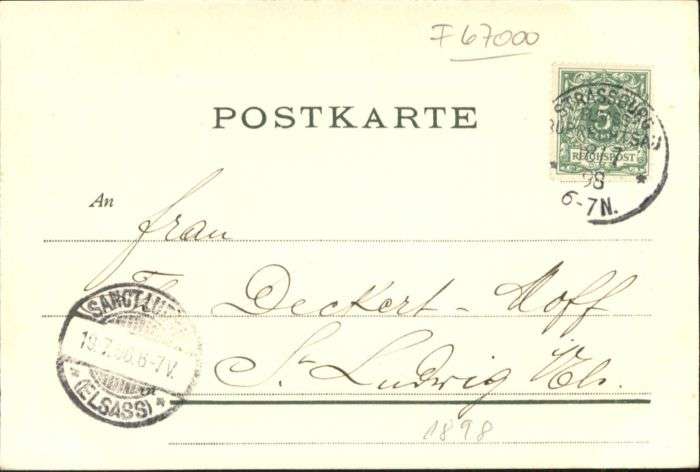 F 67000
POSTKARTE
STRASSBURG
5
REICHSPOST
98
6-7N.
An
Frau
Deckert-Hoff
St Ludwig i/Els.
SANCT LU
19.7.98.6-7V.
(ELSASS)
1898